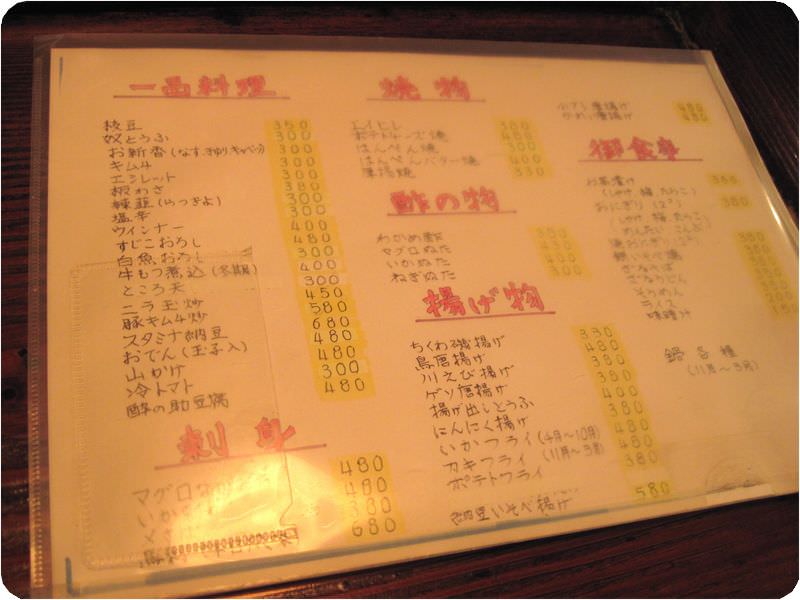 一品料理
枝豆 350
奴とうふ 300
お新香(なす.きゅうりキャベツ) 300
キムチ 300
エシレット 300
板わさ 380
辣韮(らっきょ) 300
塩辛 300
ウインナー 400
すじこおろし 480
白魚おろし 300
牛もつ煮込(冬期) 400
ところ天 300
ニラ玉炒 450
豚キムチ炒 580
スタミナ納豆 680
おでん(玉子入) 480
山かけ 480
冷トマト 300
酔の助豆腐 480
刺身
マグロ 480
いか 480
380
680
焼物
エイヒレ 380
ポテトチーズ焼 480
はんぺん焼 300
はんぺんバター焼 400
厚揚焼 330
酢の物
わかめ酢
マグロぬた
いかぬた 400
ねぎぬた 300
揚げ物
ちくわ磯揚げ 330
鳥唐揚げ 480
川えび揚げ 380
ゲソ唐揚げ 380
揚げ出しとうふ 400
にんにく揚げ 380
いかフライ(4月〜10月) 480
カキフライ(11月〜3月) 480
ポテトフライ 380
納豆いそべ揚げ 580
唐揚げ 480
唐揚げ 480
御食事
お茶漬け 380
(しゃけ、梅、たらこ)
おにぎり(2ヶ) 380
(しゃけ、梅、たらこ
めんたい こんぶ)
焼おにぎり(2ヶ) 380
ざるそば
ざるうどん
そうめん
ライス 200
味噌汁 150
鍋各種
(11月〜3月)